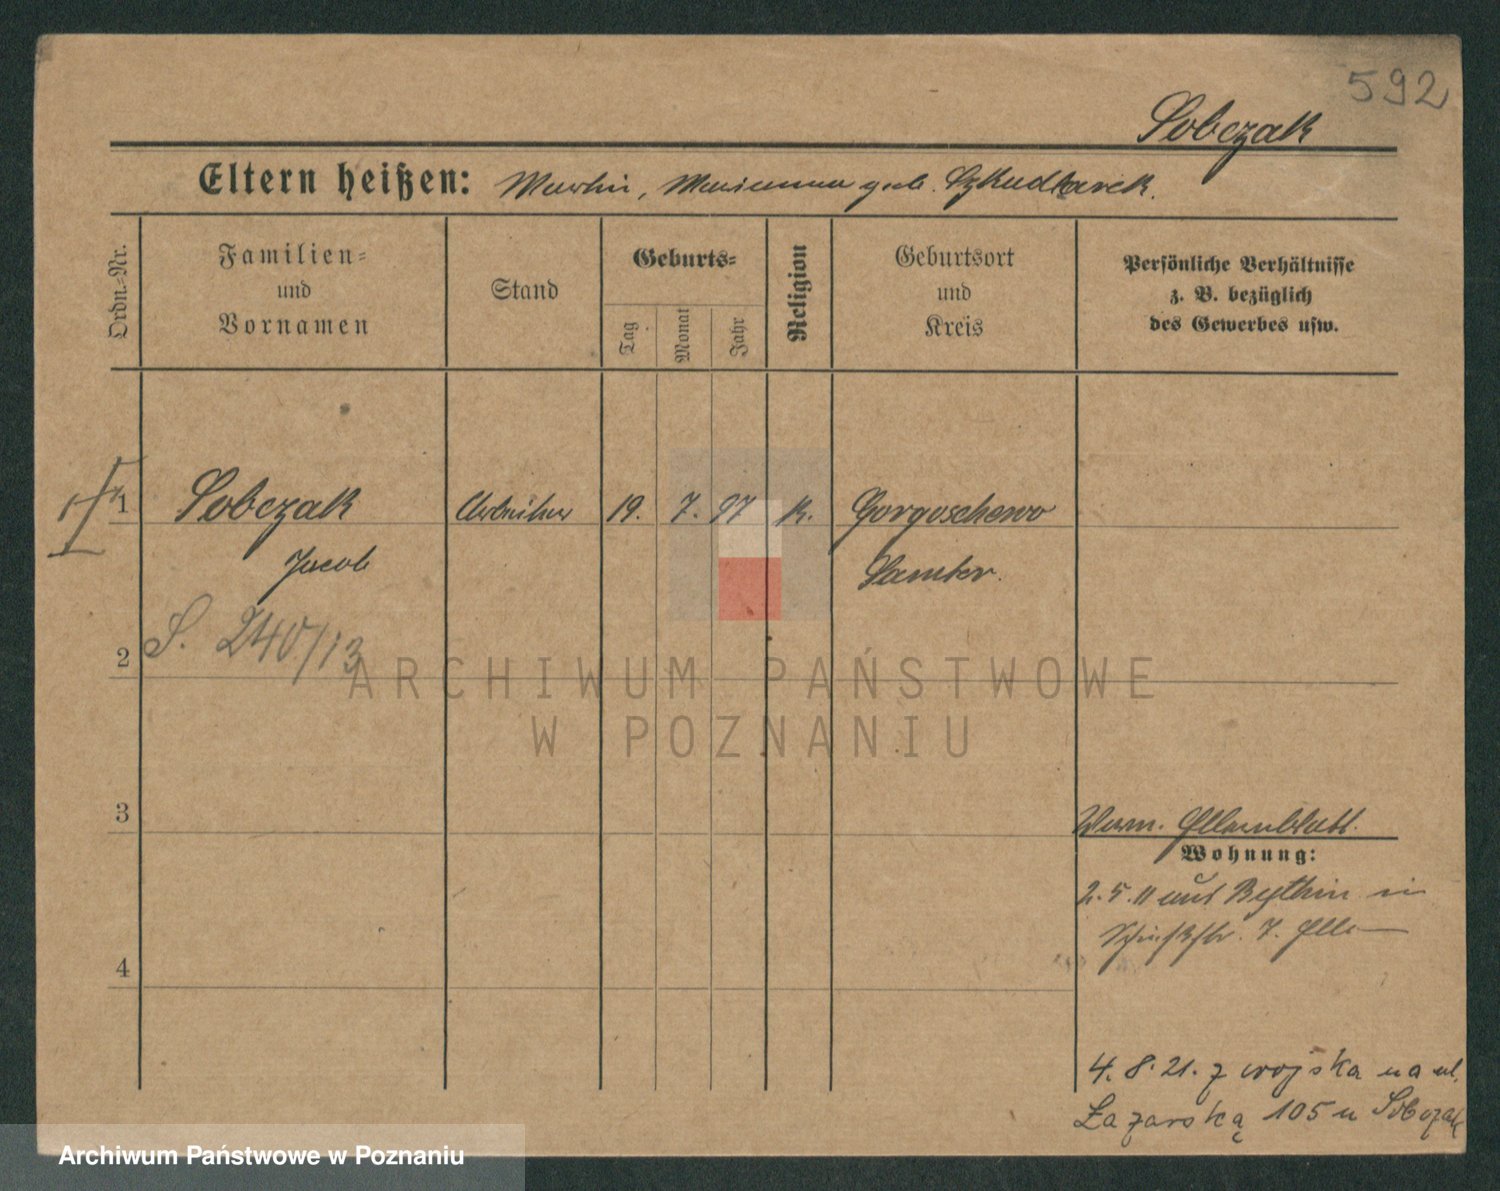 592
Sobczak
Eltern heißen: Martin, Marianna geb. Szkudlarek.
Ordn.-Nr.
Familien- und Vornamen
Stand
Geburts-
Tag
Monat
Jahr
Religion
Geburtsort und Kreis
Persönliche Verhältnisse z. B. bezüglich des Gewerbes usw.
1 Sobczak Arbeiter 19. 7. 97 k. Gorgoschewo
Jacob Samter.
S. 240/13
2
ARCHIWUM PAŃSTWOWE
W POZNANIU
3
Elternblatt.
Wohnung:
2.5.11 aus Bythin in
7.
4
4.8.21. z wojska na ul.
Łazarską 105 u Sobczak
Archiwum Państwowe w Poznaniu